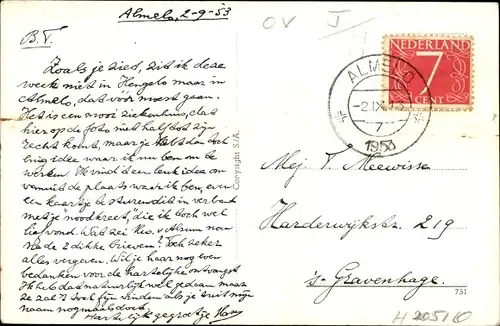 Almelo, 2-9-'53
B.V.
Zoals je ziet, zit ik deze
week niet in Hengelo maar in
Almelo, dat vóór moest gaan.
Het is een mooi ziekenhuis, dat
hier op de foto niet half tot zijn
recht komt, maar je hebt dan toch
enig idee waar ik nu ben om te
werken. Ik vind een leuk idee om
vanuit de plaats waar ik ben, even
een kaartje te sturen dit in verband
met je noodkreet, die ik toch wel
lief vond. Wat zei
na de 2 dikke brieven? Toch zeker
alles vergeven. Wil je haar nog even
bedanken voor de hartelijke ontvangst
Ik heb dat natuurlijk wel gedaan, maar
ze zal 't toch fijn vinden als je het uit mijn
naam nogmaals doet.
Hartelijk gegroetje Hans
Copyright S/A.
OV I
NEDERLAND
7
CENT
ALMELO
-2.IX.
7
1953
Mej. T. Meewisse
Harderwijkstr. 219
's-Gravenhage.
751
H 205160